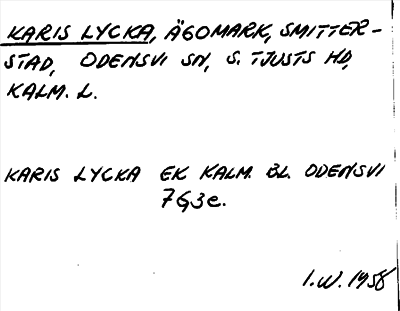 KARIS LYCKA, ÄGOMARK, SMITTER-
STAD, ODENSVI SN, S. TJUSTS HD,
KALM. L.
KARIS LYCKA EK KALM. BL. ODENSVI
7G3e.
I.W. 1958